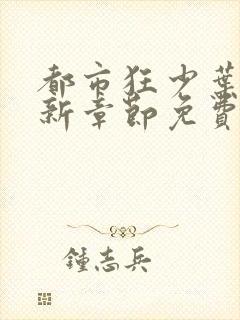 都市狂少葉
新章節免費
鍾志兵